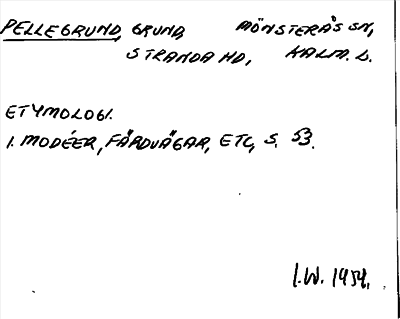 PELLEGRUND, GRUND, MÖNSTERÅS SN,
STRANDA HD, KALM. L.
ETYMOLOGI.
1. MODÉER, FÄRDVÄGAR, ETC, S. 53.
I.W. 1954.